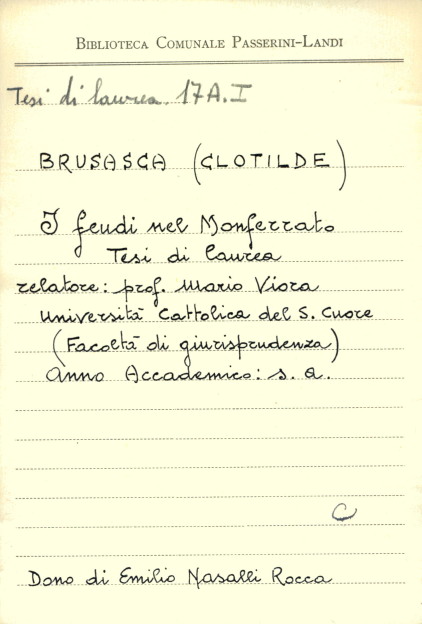 Biblioteca Comunale Passerini-Landi
Tesi di laurea. 17A.I
BRUSASCA (CLOTILDE)
I feudi nel Monferrato
Tesi di laurea
relatore: prof. Mario Viora
Università Cattolica del S. Cuore
(Facoltà di giurisprudenza)
Anno Accademico: s. a.
C
Dono di Emilio Nasalli Rocca